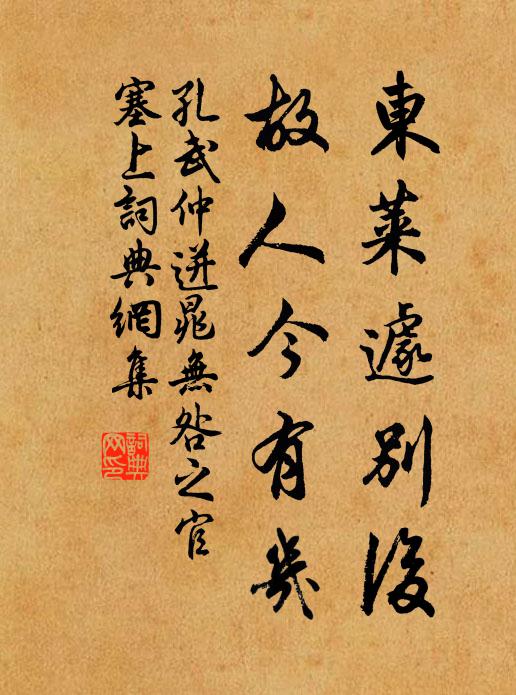 東萊遽別後
故人今有幾
孔武仲送晁無咎之官
塞上詞典網集
詞典
网印